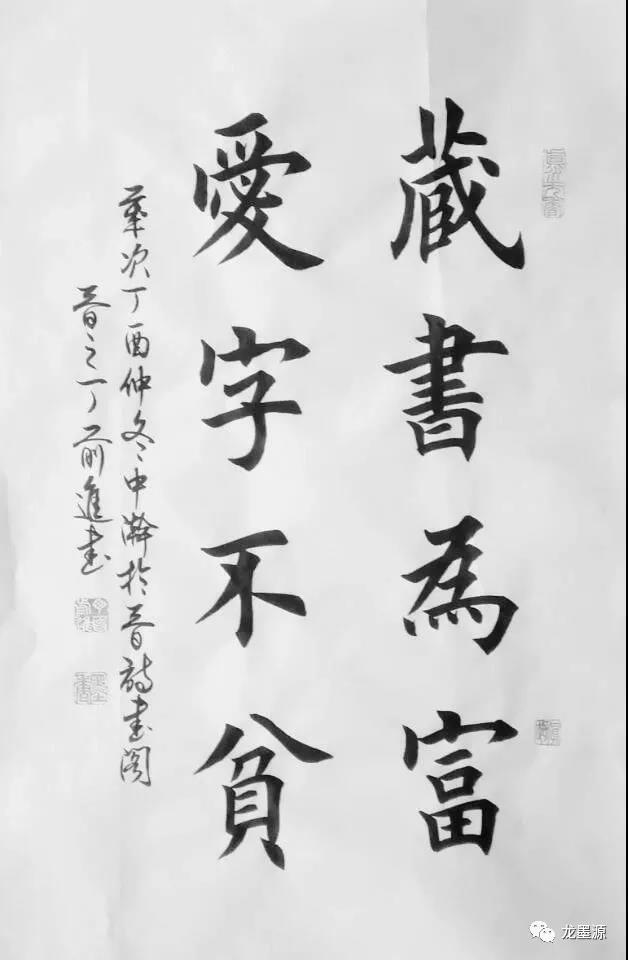 藏書為富
愛字不貧
歲次丁酉仲冬中澣於晋詩書閣
晋之丁前進書
龙墨源